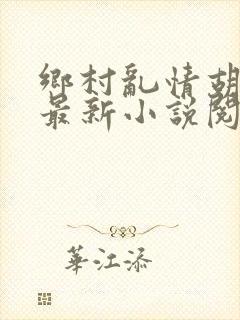 鄉村亂情胡
最新小說閱
華江添